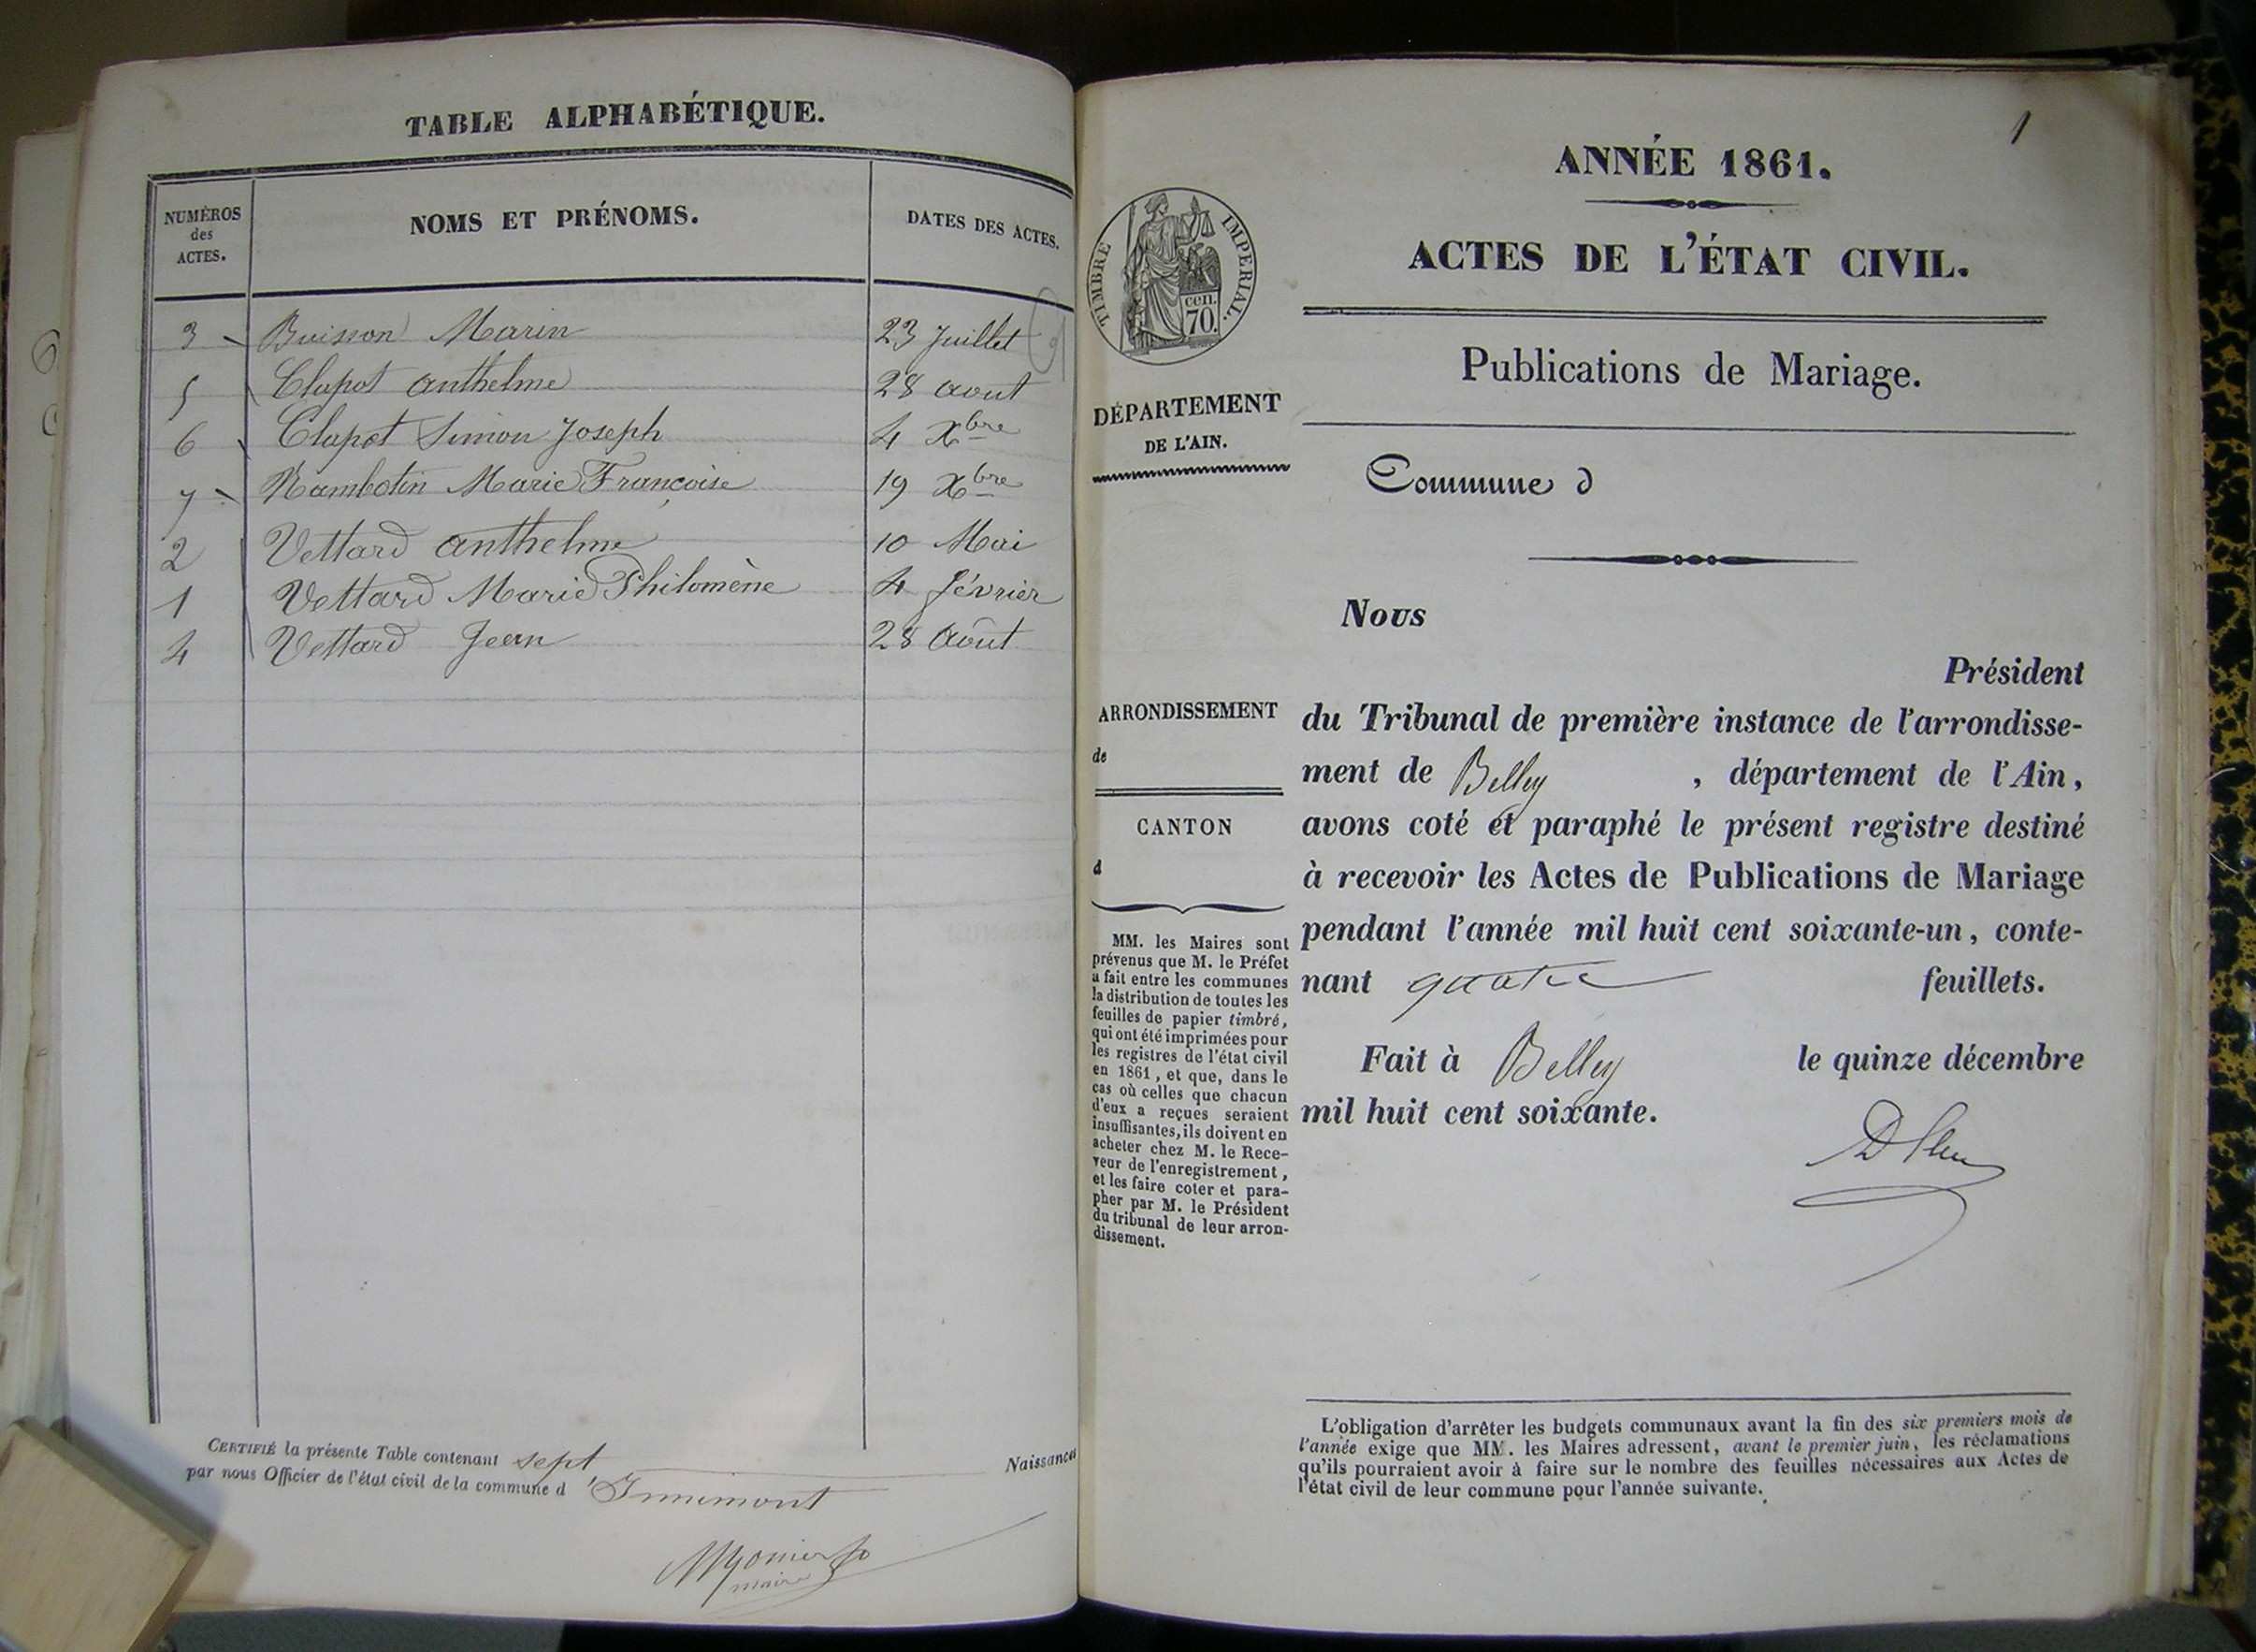 TABLE ALPHABÉTIQUE.
NUMÉROS des ACTES.
NOMS ET PRÉNOMS.
DATES DES ACTES.
3 Buisson Marin 23 Juillet
5 Clapot anthelme 28 aout
6 Clapot Simon Joseph 4 Xbre
7 Rambotin Marie Françoise 19 Xbre
2 Vettard anthelme 10 Mai
1 Vettard Marie Philomène 4 février
4 Vettard Jean 28 Août
CERTIFIÉ la présente Table contenant sept Naissances
par nous Officier de l'état civil de la commune d'Innimont
maire
1
ANNÉE 1861.
ACTES DE L'ÉTAT CIVIL.
Publications de Mariage.
Commune d
TIMBRE IMPERIAL.
cen.
70.
DÉPARTEMENT
DE L'AIN.
ARRONDISSEMENT
de
CANTON
d
MM. les Maires sont
prévenus que M. le Préfet
a fait entre les communes
la distribution de toutes les
feuilles de papier timbré,
qui ont été imprimées pour
les registres de l'état civil
en 1861, et que, dans le
cas où celles que chacun
d'eux a reçues seraient
insuffisantes, ils doivent en
acheter chez M. le Rece-
veur de l'enregistrement,
et les faire coter et para-
pher par M. le Président
du tribunal de leur arron-
dissement.
Nous
Président
du Tribunal de première instance de l'arrondisse-
ment de Belley , département de l'Ain,
avons coté et paraphé le présent registre destiné
à recevoir les Actes de Publications de Mariage
pendant l'année mil huit cent soixante-un, conte-
nant quatre feuillets.
Fait à Belley le quinze décembre
mil huit cent soixante.
L'obligation d'arrêter les budgets communaux avant la fin des six premiers mois de
l'année exige que MM. les Maires adressent, avant le premier juin, les réclamations
qu'ils pourraient avoir à faire sur le nombre des feuilles nécessaires aux Actes de
l'état civil de leur commune pour l'année suivante.